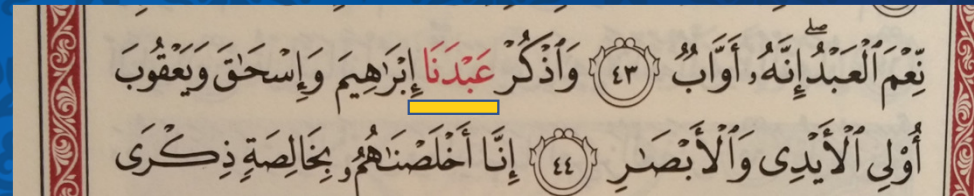 نِّعْمَ ٱلْعَبْدُ ۖ إِنَّهُۥ أَوَّابٌ ﴿٤٣﴾ وَٱذْكُرْ عَبْدَنَا إِبْرَٰهِيمَ وَإِسْحَٰقَ وَيَعْقُوبَ
أُو۟لِى ٱلْأَيْدِى وَٱلْأَبْصَٰرِ ﴿٤٤﴾ إِنَّآ أَخْلَصْنَٰهُمُۥ بِخَالِصَةِ ذِكْرَى